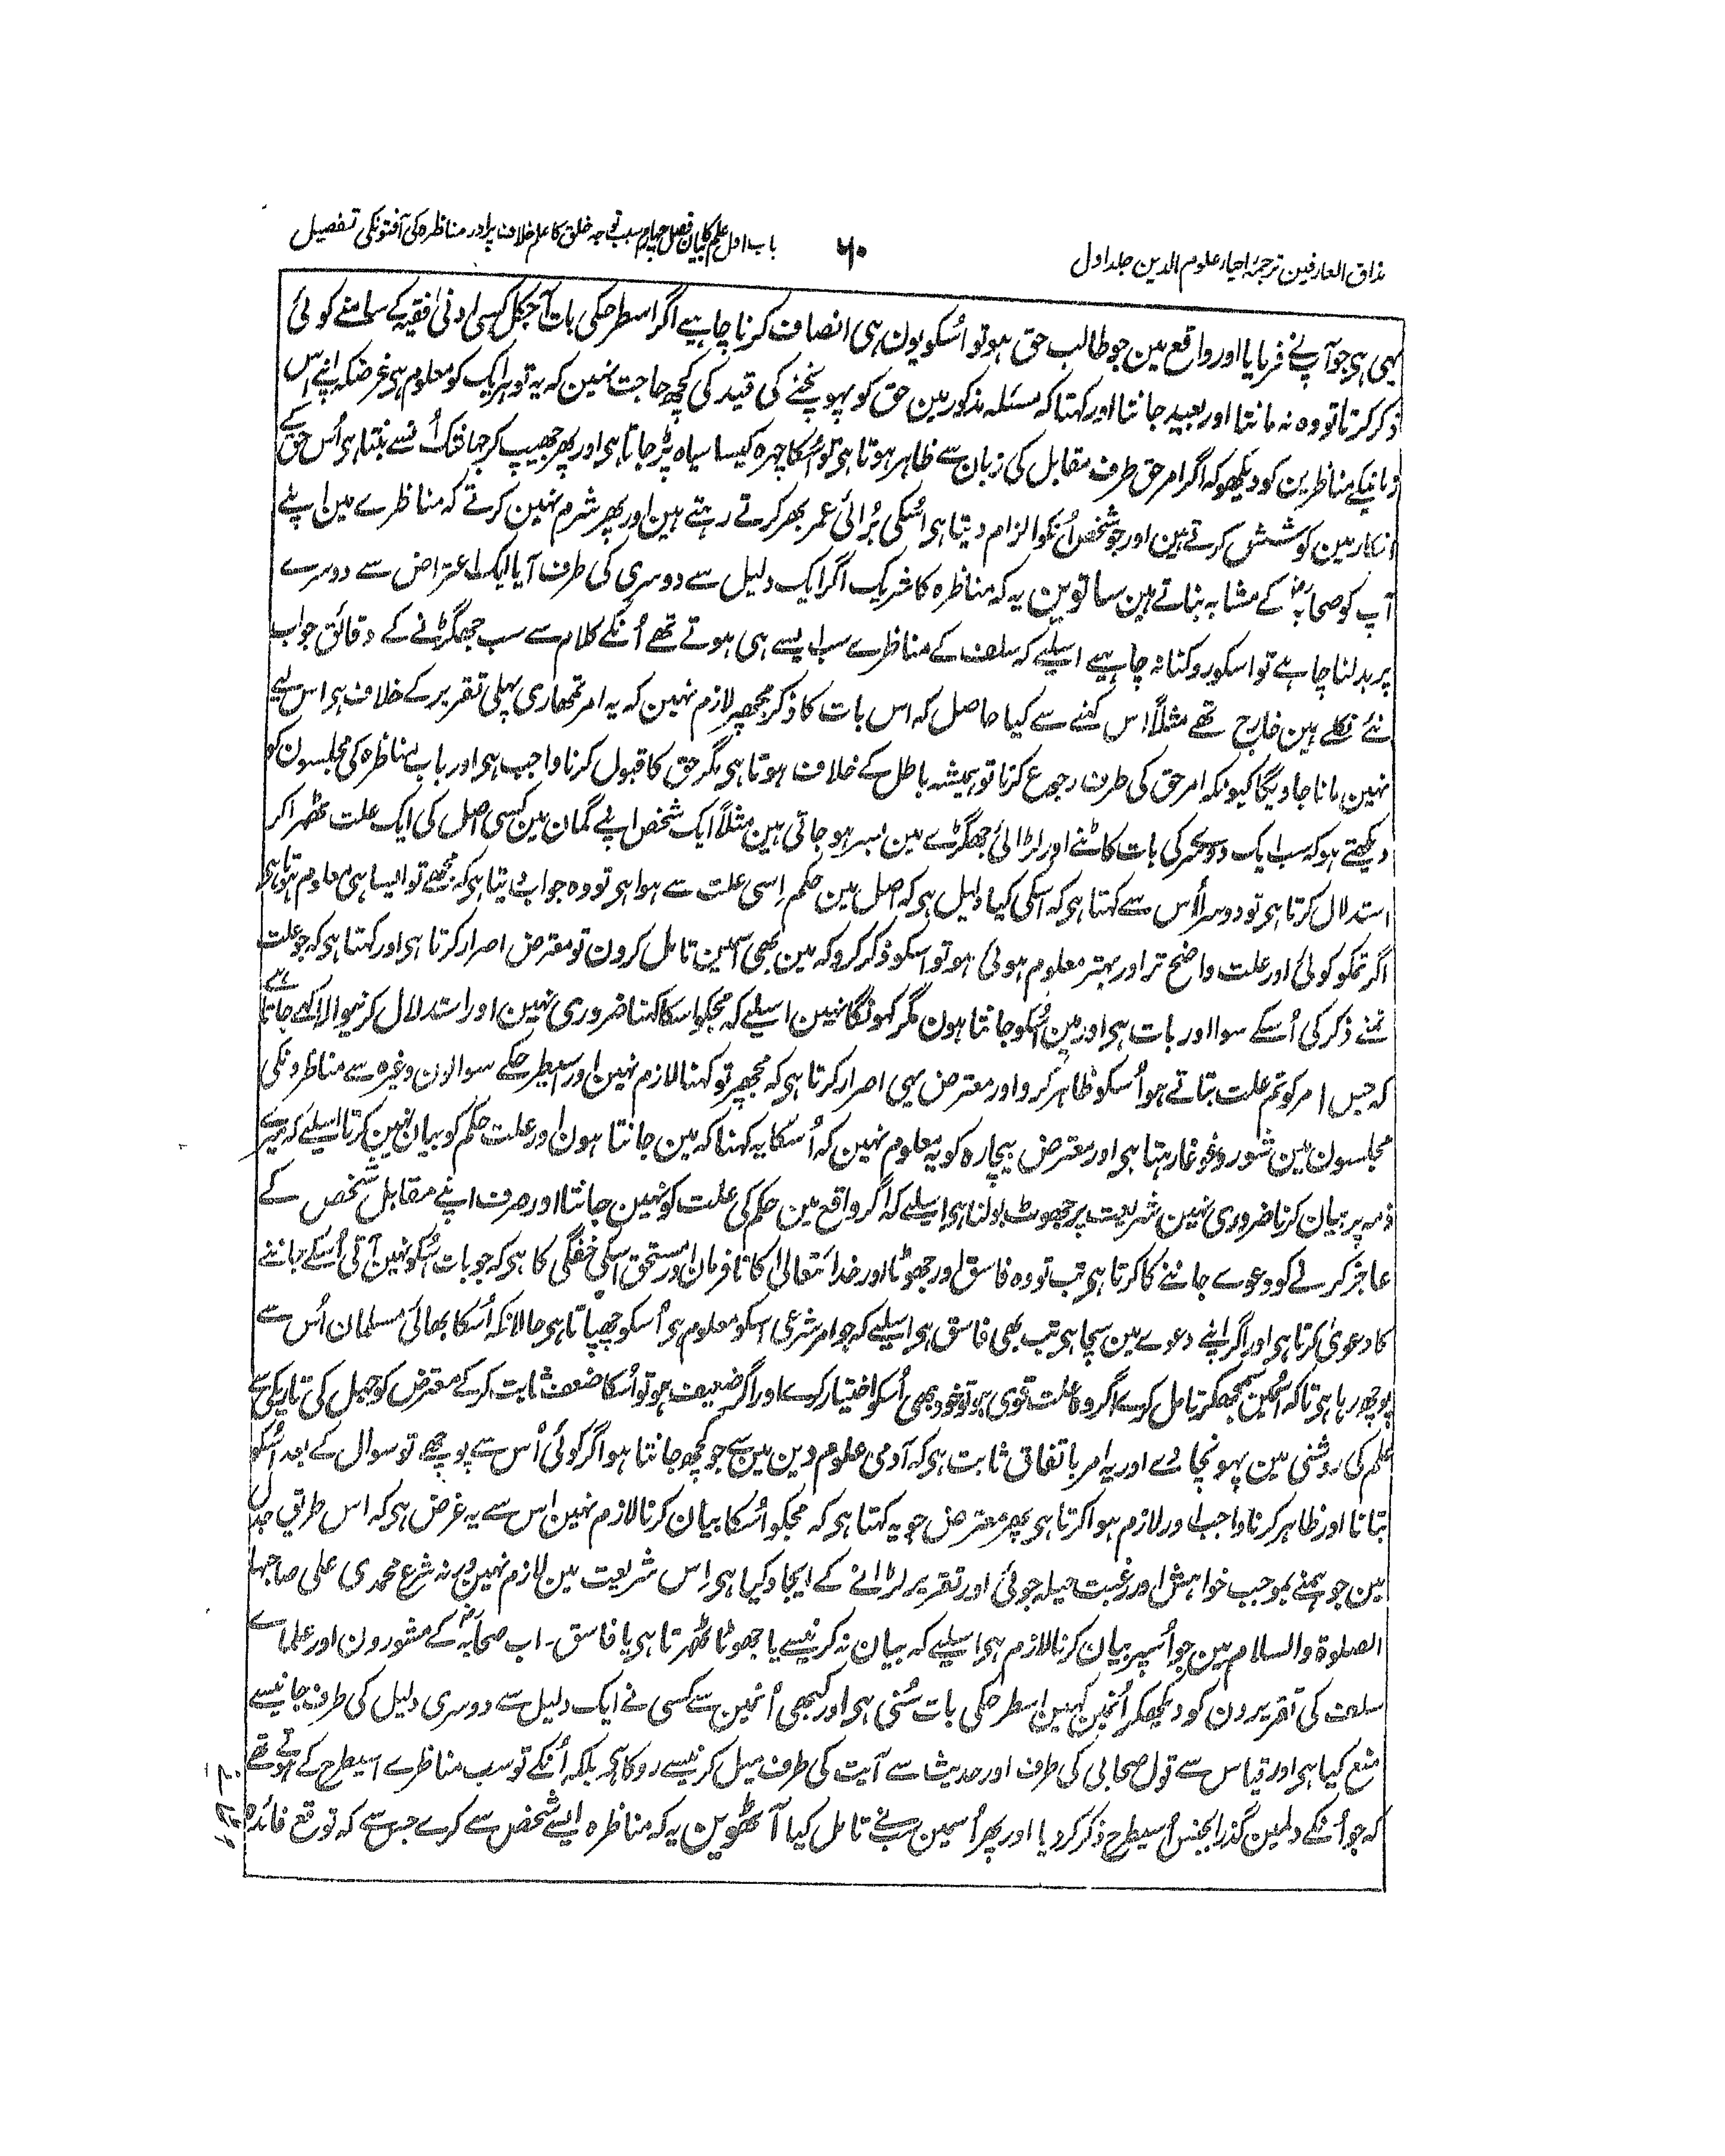 مذاق العارفین ترجمۂ احیاء علوم الدین جلد اول
۶۰
باب اول علم کا بیان فصل چہارم سبب توجہ خلق کا علم خلاف پر اور مناظرہ کی آفتونکی تفصیل
یہی ہی جو آپنے فرمایا اور واقع مین جو طالب حق ہو تو اُسکو یون ہی انصاف کرنا چاہیے اگر اسطرحکی بات آجکل کسی ادنیٰ فقیہ کے سامنے کوئی
ذکر کرتا تو وہ نہ مانتا اور بعید جانتا اور کہتا کہ مسئلہ مذکور مین حق کو پہونچنے کی قید کی کچھ حاجت نہین کہ یہ تو ہر ایک کو معلوم ہی غرضکہ اپنے اس
زمانیکے مناظرین کو دیکھو کہ اگر امر حق طرف مقابل کی زبان سے ظاہر ہوتا ہی تو اُسکا چہرہ کیسا سیاہ پڑ جاتا ہی اور پھر جھیپ کر جہانتک اُنسے بنتا ہی اُس حق کے
انکار مین کوشش کرتے ہین اور جو شخص اُنکو الزام دیتا ہی اُسکی بُرائی عمر بھر کرتے رہتے ہین اور پھر شرم نہین کرتے کہ مناظرے مین اپنے
آپ کو صحابہؓ کے مشابہ بتاتے ہین ساتوین یہ کہ مناظرہ کا شریک اگر ایک دلیل سے دوسری کی طرف آیا ایک اعتراض سے دوسرے
پر بدلنا چاہے تو اسکو روکنا نہ چاہیے اسلیے کہ سلف کے مناظرے سب ایسے ہی ہوتے تھے اُنکے کلام سے سب جھگڑنے کے دقائق جواب
نئے نکلے ہین خارج تھے مثلاً اس کہنے سے کیا حاصل کہ اس بات کا ذکر مجھپر لازم نہین کہ یہ امر تمھاری پہلی تقریر کے خلاف ہی اس لیے
نہین مانا جاویگا کیونکہ امر حق کی طرف رجوع کرنا تو ہمیشہ باطل کے خلاف ہوتا ہی مگر حق کا قبول کرنا واجب ہی اور باب مناظرہ کی مجلسون کو
دیکھتے ہو کہ سب ایک دوسرے کی بات کاٹنے اور لڑائی جھگڑے مین بسر ہو جاتی ہین مثلاً ایک شخص اپنے گمان مین کسی اصل کی ایک علت ٹھہرا کر
استدلال کرتا ہی تو دوسرا اُس سے کہتا ہی کہ اسکی کیا دلیل ہی کہ اصل مین حکم اِسی علت سے ہوا ہی تو وہ جواب دیتا ہی کہ مجھے تو ایسا ہی معلوم ہوتا ہی
اگر تمکو کوئی اور علت واضح تر اور بہتر معلوم ہوئی ہو تو اسکو ذکر کرو کہ مین بھی اسمین تامل کرون تو معترض اصرار کرتا ہی اور کہتا ہی کہ جو علت
تمنے ذکر کی اُسکے سوا اور بات ہی اور مین اُسکو جانتا ہون مگر کہونگا نہین اسلیے کہ مجکو اسکا کہنا ضروری نہین اور استدلال کرنیوالا کہے جاتا ہے
کہ جس امر کو تم علت بتاتے ہو اُسکو ظاہر کرو اور معترض یہی اصرار کرتا ہی کہ مجھپر تو کہنا لازم نہین اور اسیطرحکے سوالون وغیرہ سے مناظرونکی
مجلسون مین شور و غوغا رہتا ہی اور معترض بیچارہ کو یہ معلوم نہین کہ اُسکا یہ کہنا کہ مین جانتا ہون اور علت حکم کو بیان نہین کرتا اسلیے کہ میرے
ذمہ پر بیان کرنا ضروری نہین شریعت پر جھوٹ بولنا ہی اسلیے کہ اگر واقع مین حکم کی علت کو نہین جانتا اور صرف اپنے مقابل شخص کے
عاجز کرنے کو دعوے جاننے کا کرتا ہی تب تو وہ فاسق اور جھوٹا اور خدا تعالیٰ کا نافرمان اور مستحق اسکی خفگی کا ہی کہ جو بات اُسکو نہین آتی اُسکے جاننے
کا دعویٰ کرتا ہی اور اگر اپنے دعوے مین سچا ہی تب بھی فاسق ہی اسلیے کہ جو امر شرعی اسکو معلوم ہی اُسکو چھپاتا ہی حالانکہ اُسکا بھائی مسلمان اُس سے
پوچھ رہا ہی تاکہ اُسمین سمجھکر تامل کرے اگر وہ علت قوی ہو تو خود بھی اُسکو اختیار کرے اور اگر ضعیف ہو تو اُسکا ضعف ثابت کر کے معترض کو جہل کی تاریکی سے
علم کی روشنی مین پہونچا دے اور یہ امر باتفاق ثابت ہی کہ آدمی علوم دین مین سے جو کچھ جانتا ہو اگر کوئی اُس سے پوچھے تو سوال کے بعد اُسکو
بتانا اور ظاہر کرنا واجب اور لازم ہوا کرتا ہی پھر معترض جو یہ کہتا ہی کہ مجکو اُسکا بیان کرنا لازم نہین اس سے یہ غرض ہی کہ اس طریق جدل
مین جو ہمنے بموجب خواہش اور رغبت حیلہ جوئی اور تقریر لڑانے کے ایجاد کیا ہی اِس شریعت مین لازم نہین ورنہ شرع محمدی علی صاحبہا
الصلوۃ والسلام مین جو اُسپر بیان کرنا لازم ہی اسلیے کہ بیان نہ کرنیسے یا جھوٹا ٹھہرتا ہی یا فاسق۔ اب صحابہؓ کے مشورون اور علماے
سلف کی تقریرون کو دیکھکر اُنمین کہین اسطرحکی بات سُنی ہی اور کبھی اُنمین سے کسی نے ایک دلیل سے دوسری دلیل کی طرف جانیسے
منع کیا ہی اور قیاس سے قول صحابی کی طرف اور حدیث سے آیت کی طرف میل کرنیسے روکا ہی بلکہ اُنکے تو سب مناظرے اسیطرح کے ہوتے تھے
کہ جو اُنکے دلمین گذرا بجنس اُسیطرح ذکر کر دیا اور پھر اُسمین سبنے تامل کیا آٹھوین یہ کہ مناظرہ ایسے شخص سے کرے جس سے کہ توقع فائدہ